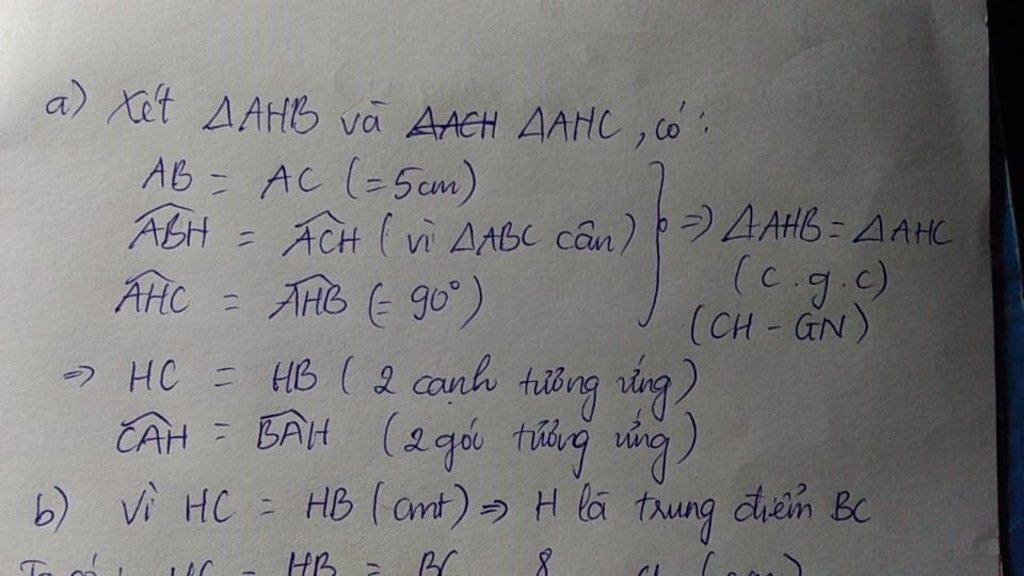 a) Xét ΔAHB và ΔACH ΔAHC, có:
AB = AC (= 5cm)
ABH = ACH (vì ΔABC cân) } => ΔAHB = ΔAHC
(c.g.c)
AHC = AHB (= 90°)
(CH - GN)
=> HC = HB (2 cạnh tương ứng)
CAH = BAH (2 góc tương ứng)
b) Vì HC = HB (cmt) => H là trung điểm BC
HC = HB = BC 8